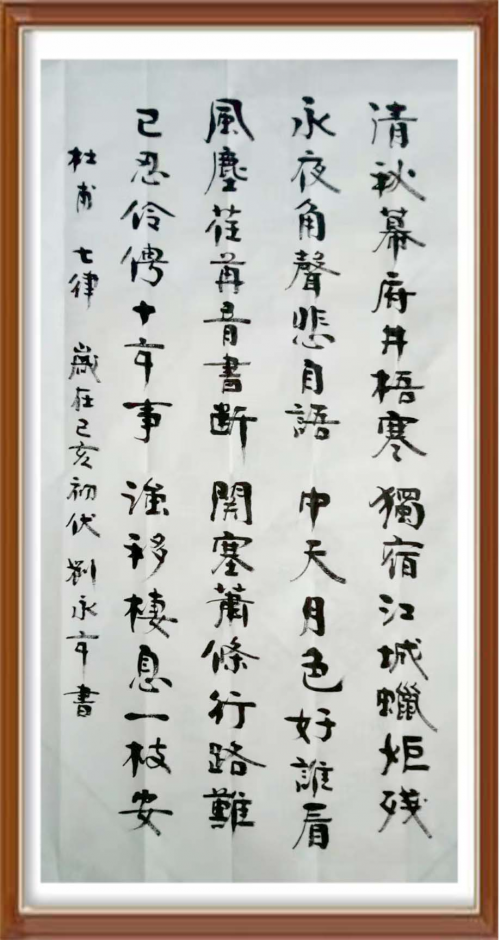 清秋幕府井梧寒 獨宿江城蠟炬残
永夜角聲悲自語 中天月色好誰看
風塵荏苒音書断 関塞蕭條行路難
已忍伶俜十年事 強移棲息一枝安
杜甫 七律 歲在己亥初伏 劉永年書